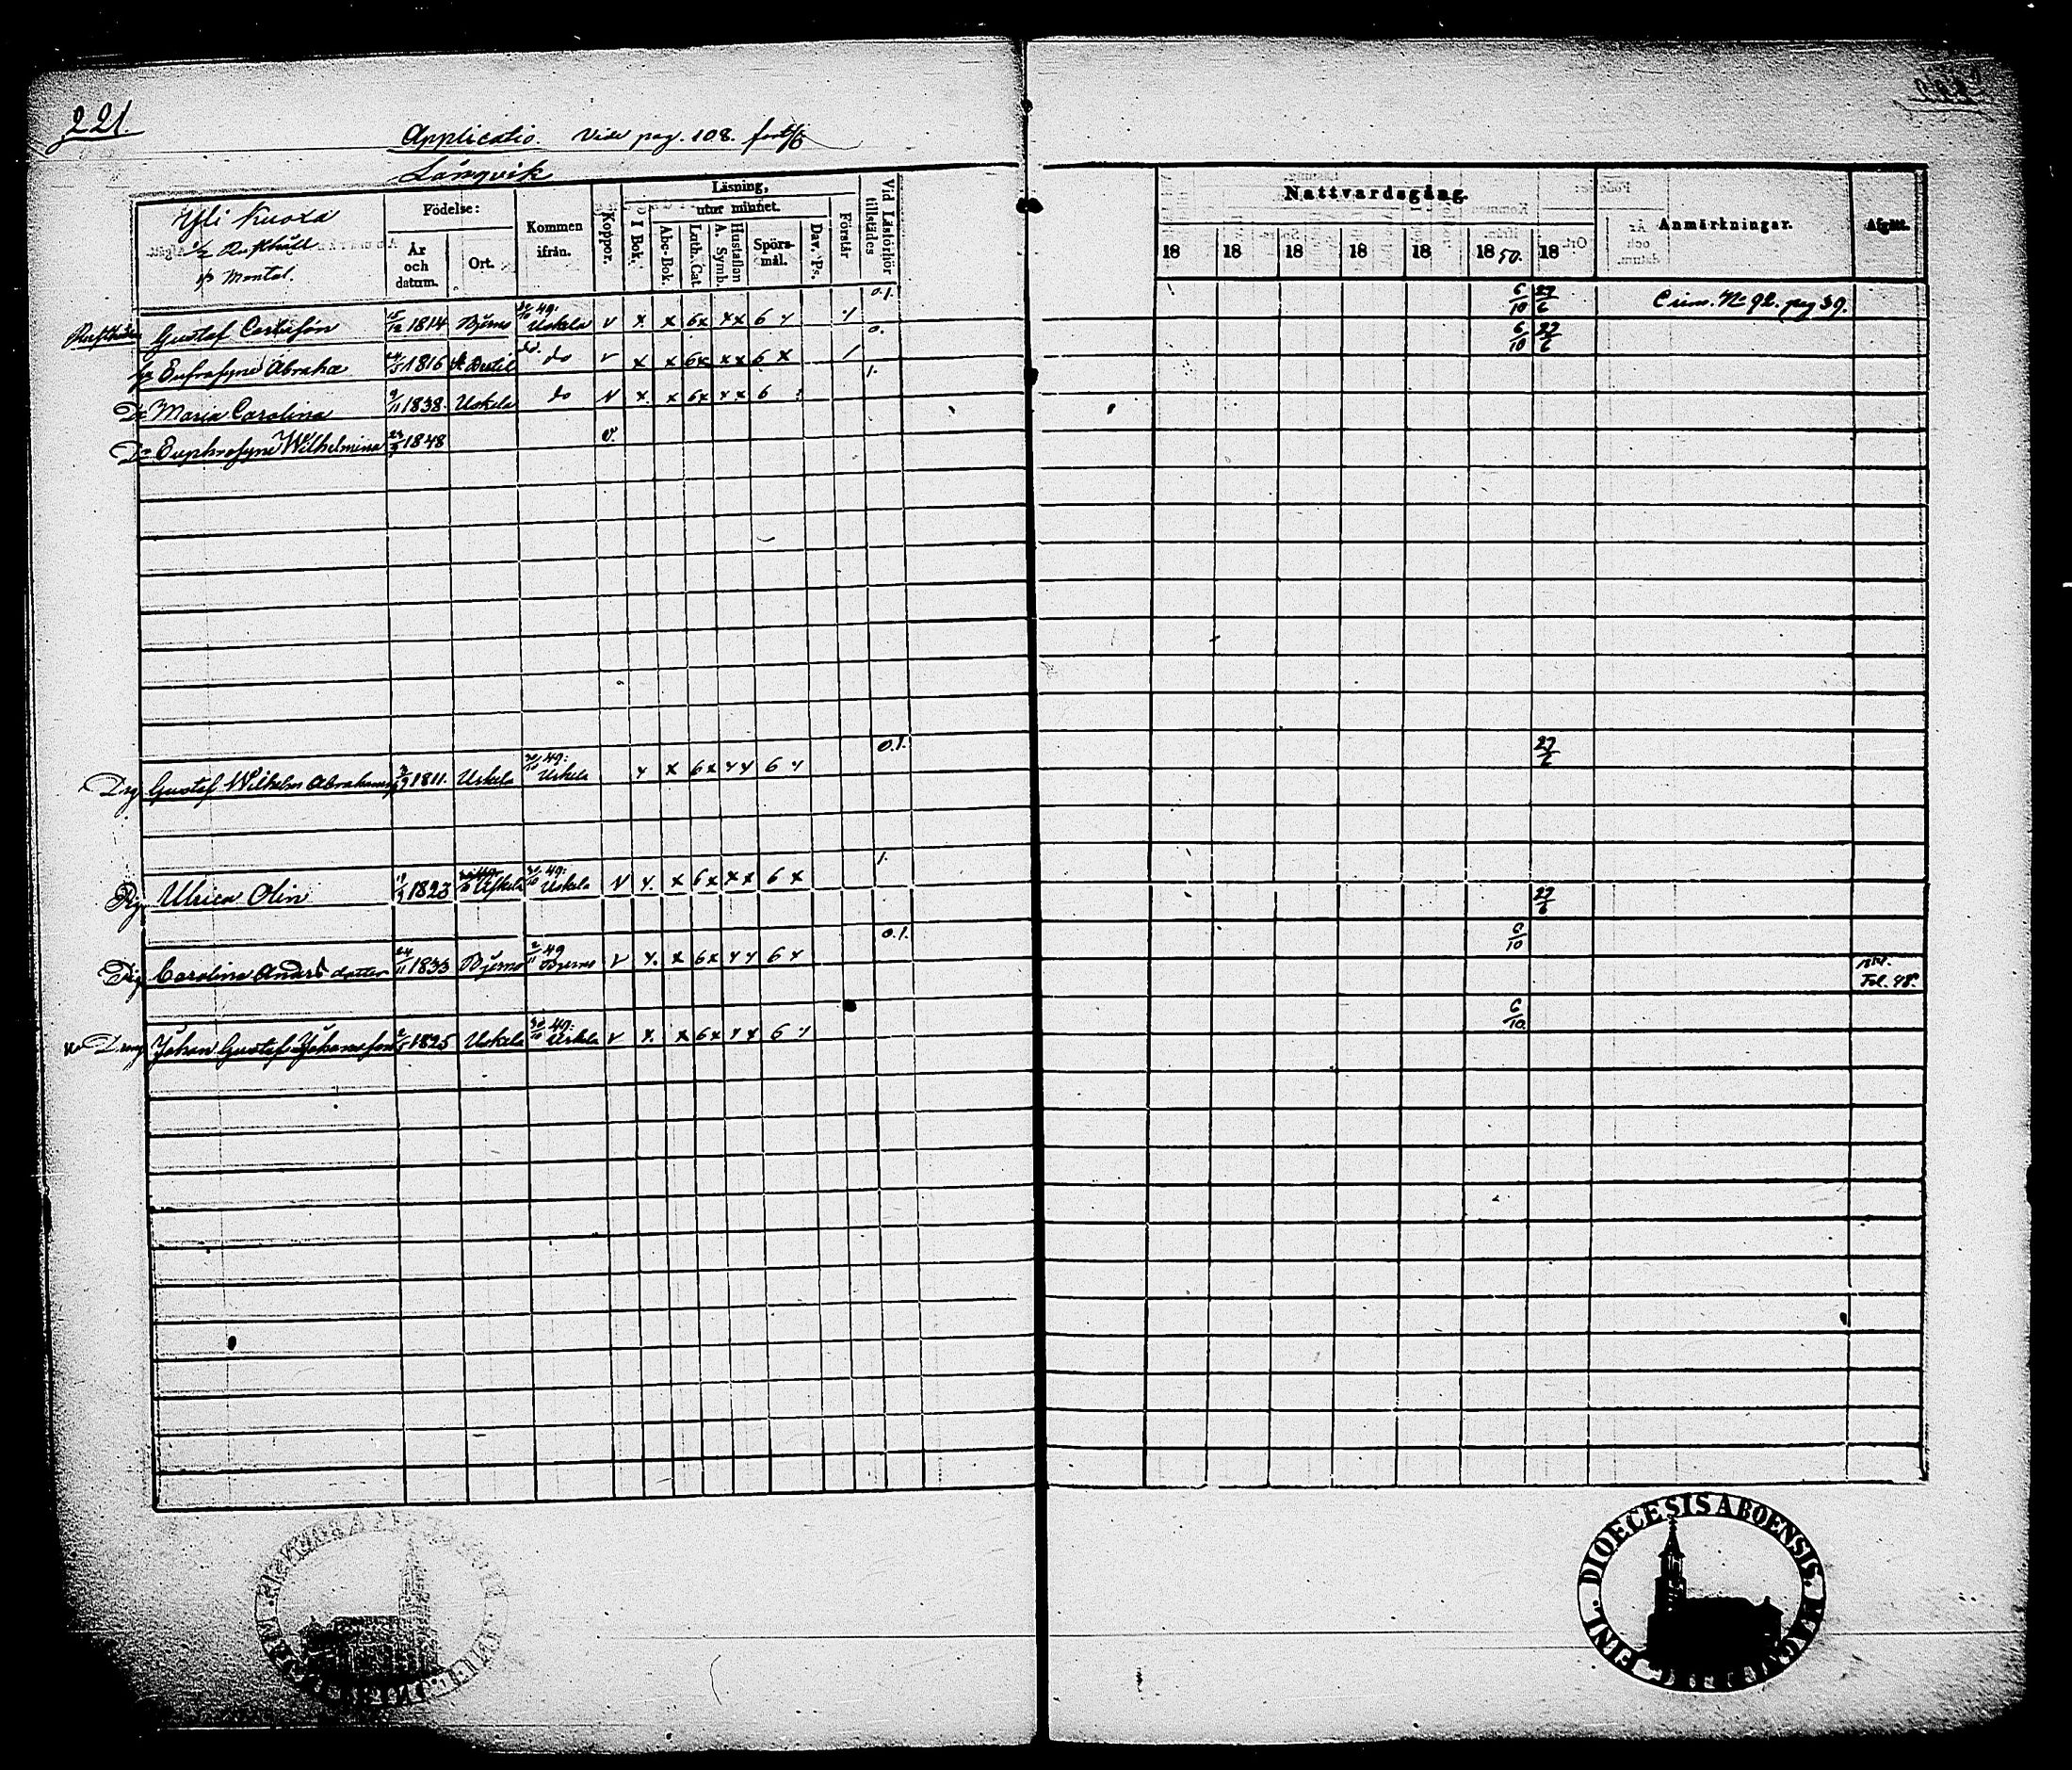 221.
Applicatio. Vide pag. 108. forts
Långvik
Yli Kuoxa
1/2 Rusthåll
Mantal.
Födelse:
År och datum.
Ort.
Kommen ifrån.
Koppor.
Läsning,
I Bok.
utur minnet.
Abc-Bok.
Luth. Cat
Hustaflan A. Symb.
Spörsmål.
Dav. Ps.
Förstår
Vid Läsförhör tillstädes
Nattvardsgång.
18 18 18 18 18 1850. 18
Anmärkningar.
Afgått.
Gustaf 15/12 1814 Bjerno 49: Uskela v x x 6x xx 6 x 1 0.1. 6/10 27/6 Crim. No 92. pag 39.
Hu Eufrosyne Abraha 1816 do v x x 6x xx 6 x 1 0. 6/10 27/6
Dr Maria Carolina 9/11 1838. Uskela do v x. x 6x xx 6 1.
Dr Euphrosyne Wilhelmina 1848 v.
Drg Gustaf Wilhelm Abrahamss 1811. Uskela 30/10 49: Uskela x x 6x xx 6 x 0.1. 27/6
Pig Ulrica Olin 1823 Uskela 30/10 49: Uskela v x. x 6x xx 6 x 1. 27/6
Pig Carolina Anders dotter 24/11 1833 Bjerno 2/11 49 Bjerno v x. x 6x xx 6 x 0.1. 6/10 Fol. 48.
Dreng Johan Gustaf Johansson 1825 Uskela 30/10 49: Uskela v x. x 6x xx 6 x 6/10
DIOECESIS ABOENSIS.
FINL.